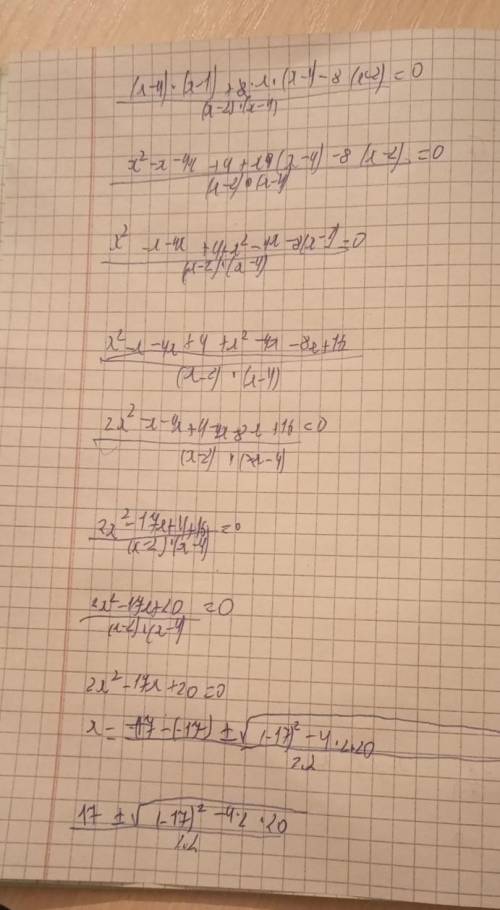 (x-4)·(x-1)+8·x·(x-4)-8(x-2)=0
(x-2)·(x-4)
x²-x-4x+4+x(x-4)-8(x-2)=0
(x-2)·(x-4)
x²-x-4x+4+x²-4x-8(x-2)=0
(x-2)·(x-4)
x²-x-4x+4+x²-4x-8x+16
(x-2)·(x-4)
2x²-x-4x+4-4x-8x+16=0
(x-2)·(x-4)
2x²-17x+4+16=0
(x-2)·(x-4)
2x²-17x+20=0
(x-2)·(x-4)
2x²-17x+20=0
x= -(-17) ± √(-17)²-4·2·20
2·2
17 ± √(-17)²-4·2·20
2·2